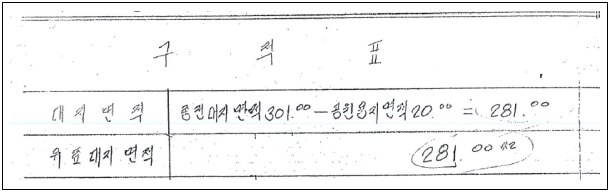 구 적 표
대지면적 종전대지면적 301.00 - 공원용지면적 20.00 = 281.00
유효대지면적 281.00 m2